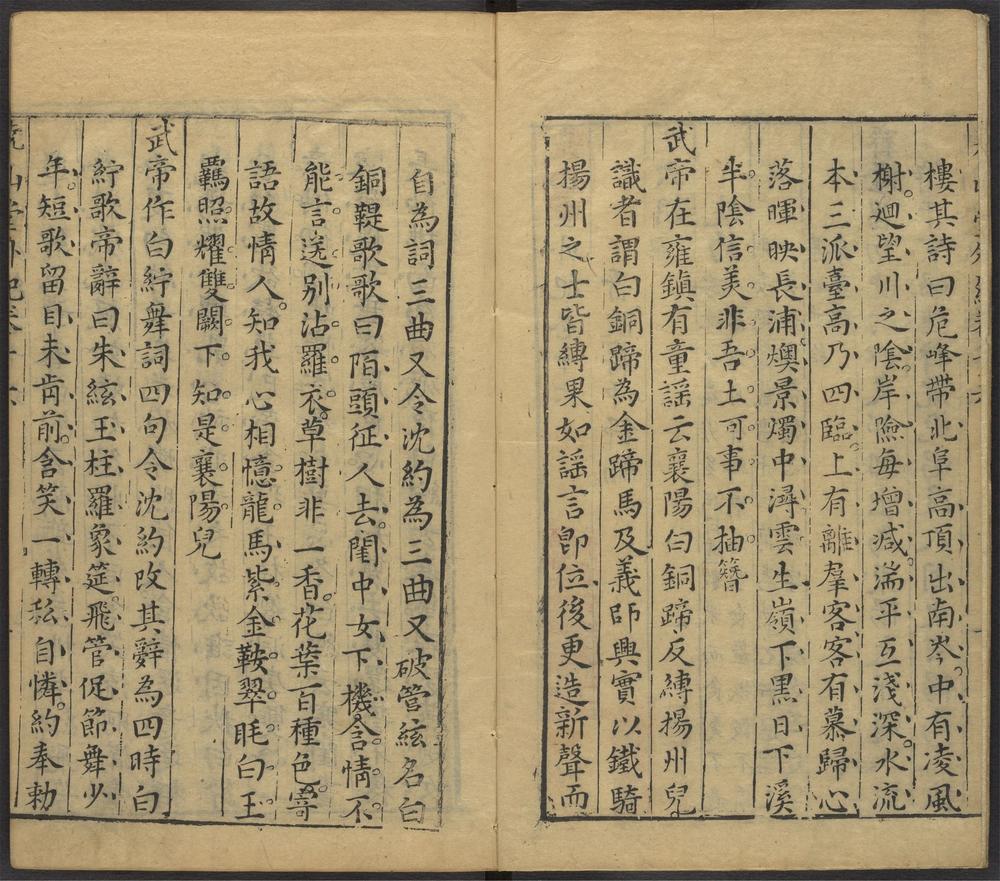 樓其詩曰危峰帶北阜高頂出南岑中有凌風
榭迴望川之陰岸險每增減湍平互淺深水流
本三派臺高乃四臨上有離羣客客有慕歸心
落暉映長浦燠景燭中潯雲生嶺下黑日下溪
半陰信美非吾土可事不抽簪
武帝在雍鎮有童謠云襄陽白銅蹄反縛揚州兒
識者謂白銅蹄為金蹄馬及義師興實以鐵騎
揚州之士皆縛果如謠言卽位後更造新聲而
自為詞三曲又令沈約為三曲又破管絃名白
銅鞮歌歌曰陌頭征人去閨中女下機含情不
能言送別沾羅衣草樹非一香花葉百種色寄
語故情人知我心相憶龍馬紫金鞍翠眊白玉
羈照耀雙闕下知是襄陽兒
武帝作白紵舞詞四句令沈約改其辭為四時白
紵歌帝辭曰朱絃玉柱羅象筵飛管促節舞少
年短歌留目未肯前含笑一轉私自憐約奉勅